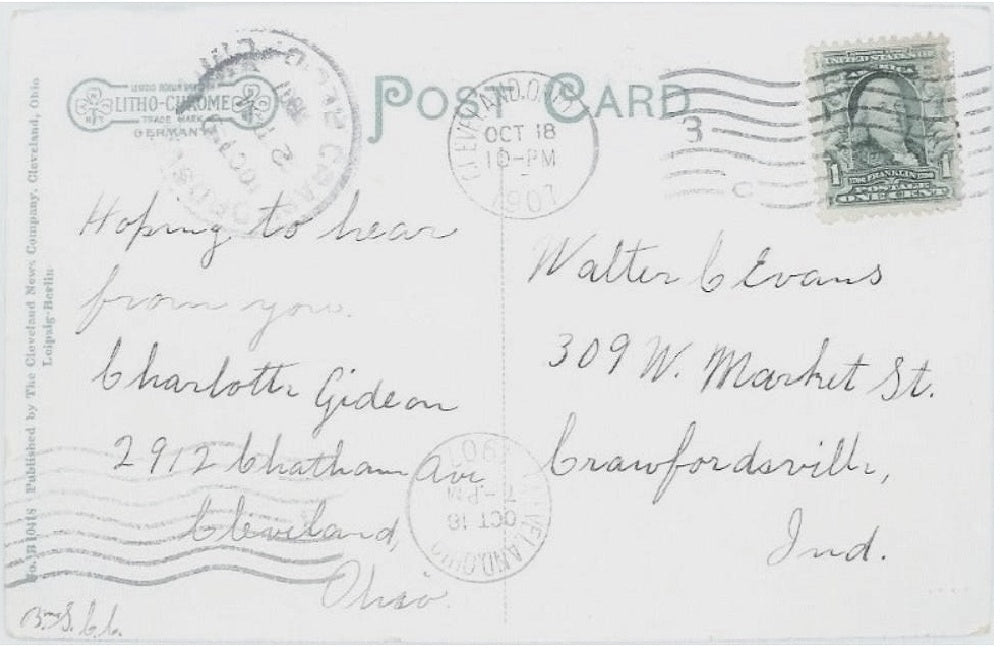 POST CARD
LITHO-CHROME
TRADE MARK
GERMANY
CLEVELAND, OHIO
OCT 18
10-PM
1907
3
C
UNITED STATES OF AMERICA
1 FRANKLIN 1
POSTAGE
ONE CENT
Hoping to hear
from you.
Charlotte Gideon
2912 Chatham Ave
Cleveland,
Ohio.
Walter C Evans
309 W. Market St.
Crawfordsville,
Ind.
CLEVELAND, OHIO
OCT 18
7-PM
1907
Published by The Cleveland News Company, Cleveland, Ohio
Leipzig-Berlin